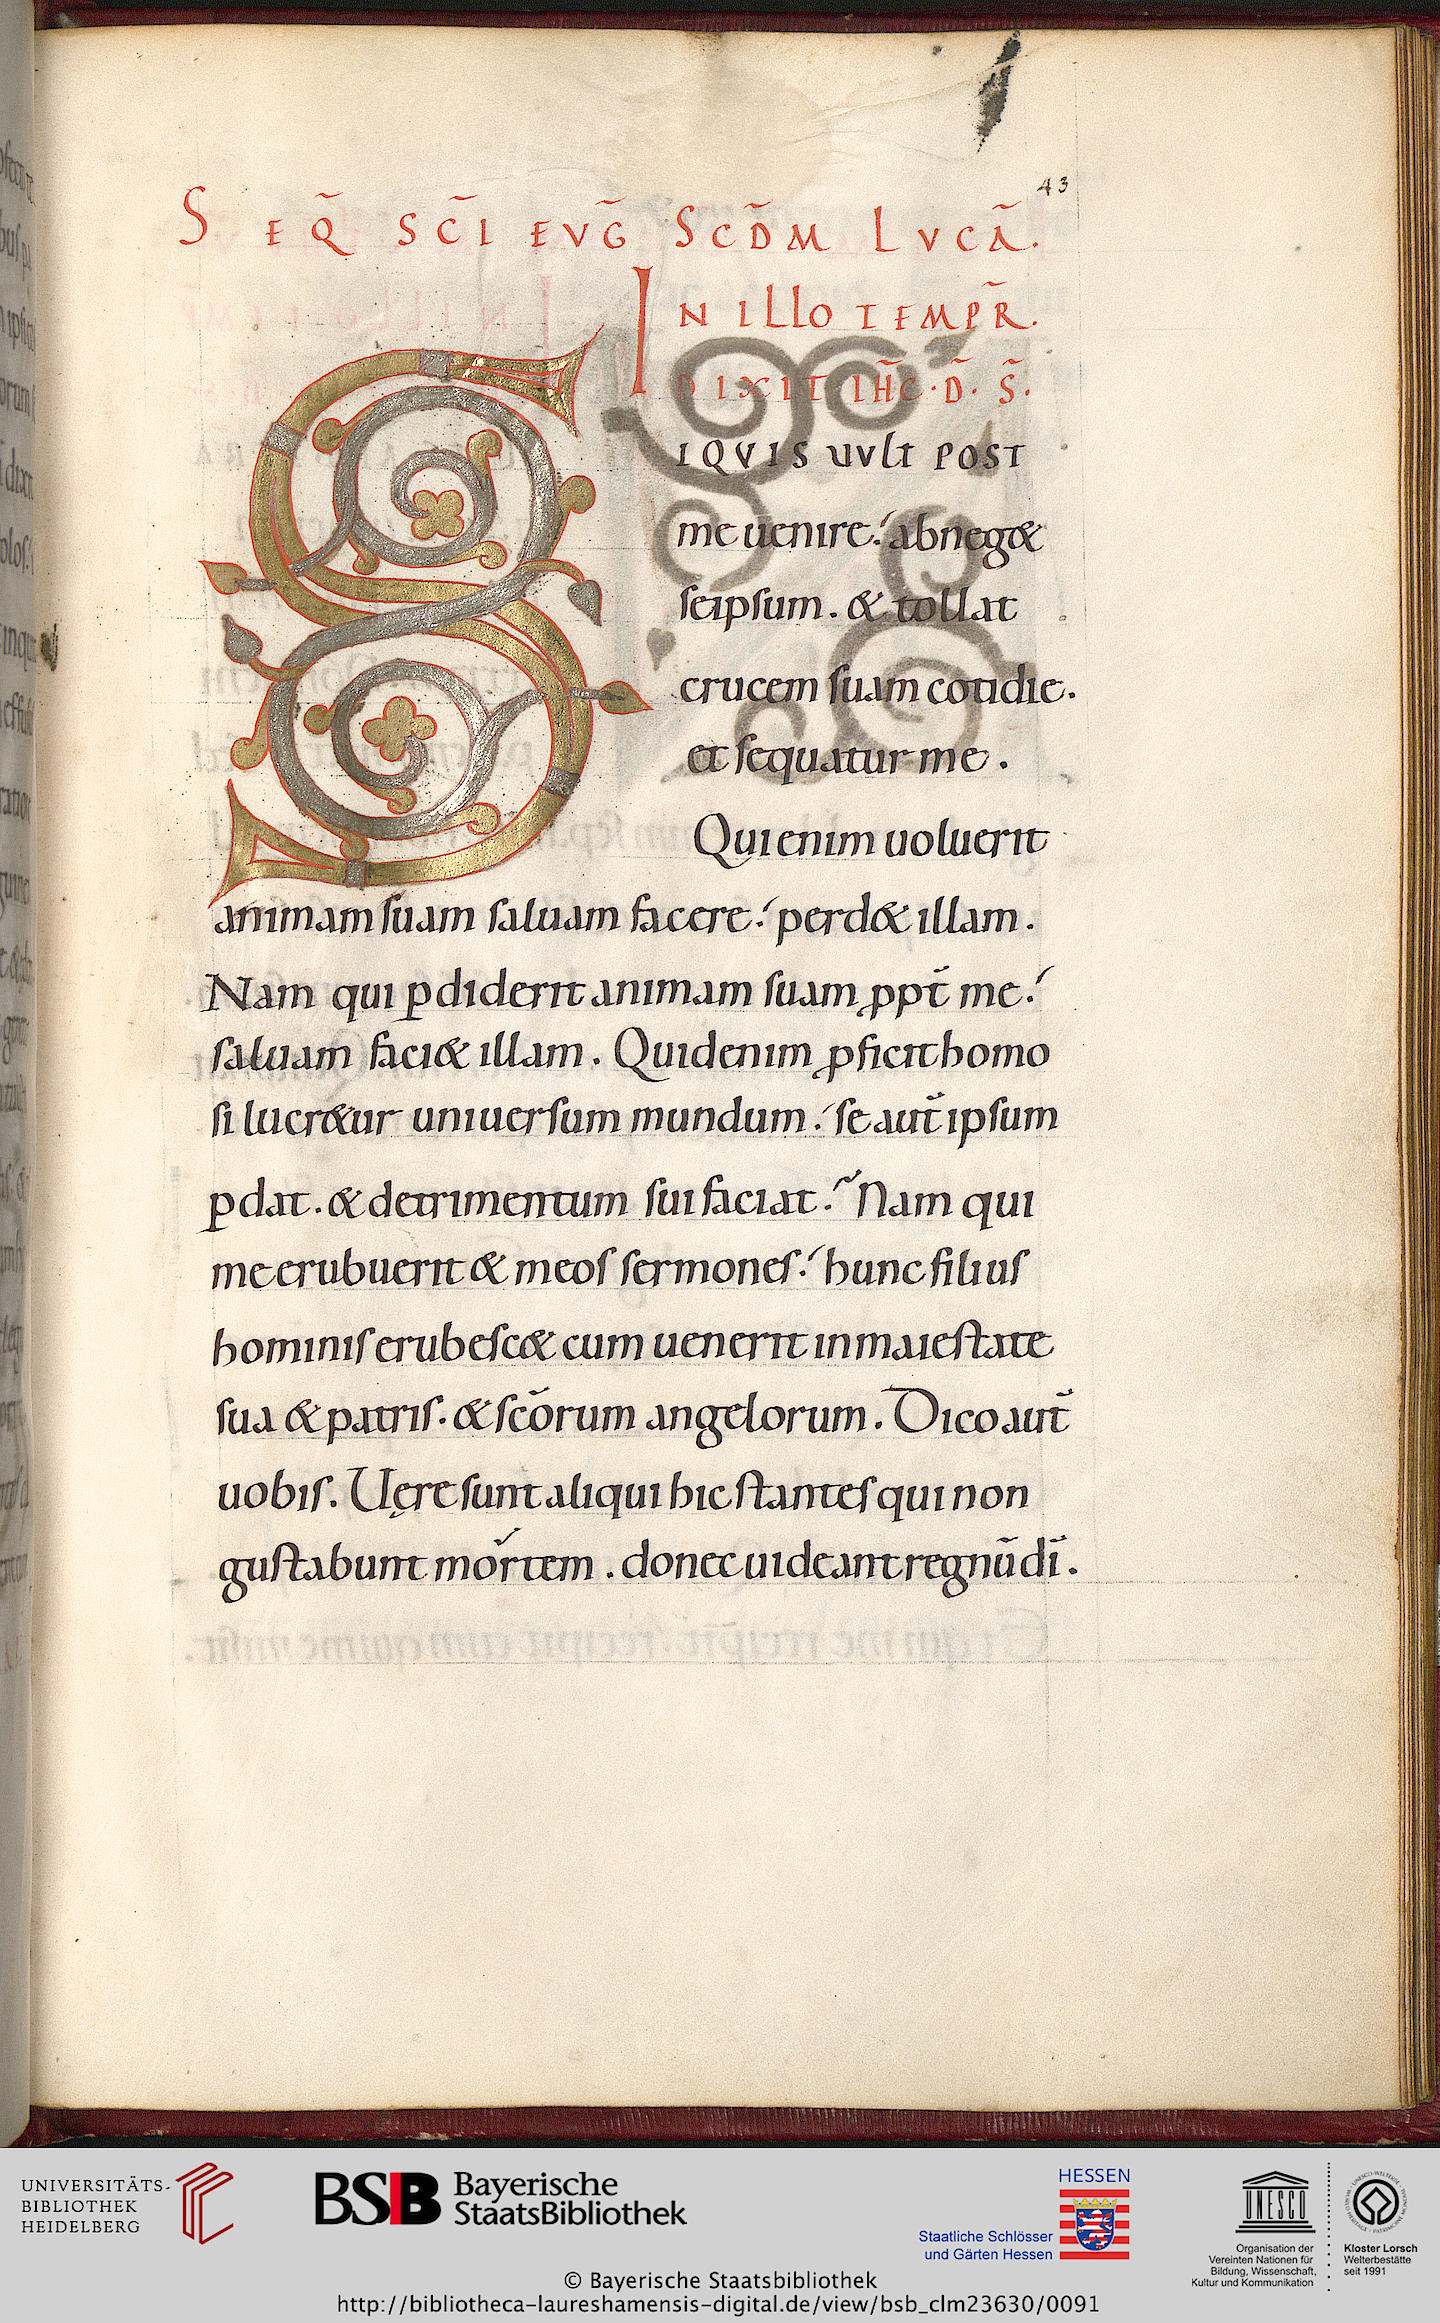 43
SEQ̃ SC̃I EVG̃ SCD̃M LVCÃ.
IN ILLO TEMPR̃.
DIXIT IHC̃·D̃·S̃.
SIQVIS UVLT POST
me uenire: abneg&
seipsum. & tollat
crucem suam cotidie.
et sequatur me.
Qui enim uoluerit
animam suam saluam facere: perd& illam.
Nam qui ꝑdiderit animam suam ꝓpt̄ me:
saluam faci& illam. Quid enim ꝓficit homo
si lucr&ur uniuersum mundum: se aut̄ ipsum
ꝑdat. & detrimentum sui faciat: Nam qui
me erubuerit & meos sermones: hunc filius
hominis erubesc& cum uenerit in maiestate
sua & patris. & scōrum angelorum. Dico aut̄
uobis. Uęre sunt aliqui hic stantes qui non
gustabunt mortem. donec uideant regnū dī.
UNIVERSITÄTS-
BIBLIOTHEK
HEIDELBERG
BSB Bayerische
StaatsBibliothek
HESSEN
Staatliche Schlösser
und Gärten Hessen
UNESCO
Organisation der
Vereinten Nationen für
Bildung, Wissenschaft,
Kultur und Kommunikation
Kloster Lorsch
Welterbestätte
seit 1991
© Bayerische Staatsbibliothek
http://bibliotheca-laureshamensis-digital.de/view/bsb_clm23630/0091